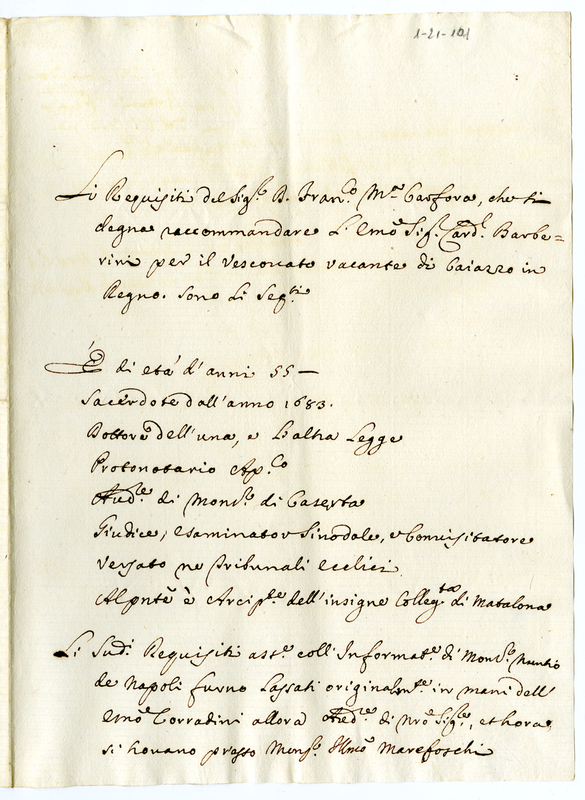 1-21-101
Li Requisiti del Sig.r D. Fran.co M.a Carfora, che si
degna raccommandare L'Emo Sig.r Card.l Barbe=
rini per il Vescovato vacante di Caiazzo in
Regno. Sono li Seg.ti
È di età d'anni 55 —
Sacerdote dall'anno 1683.
Dottore dell'una, e l'altra Legge
Protonotario Ap.co
Aud.re di Mons.r di Caserta
Giudice, esaminator Sinodale, e Convisitatore
Versato ne Tribunali Ecclici
Alpnte è Arcip.te dell'insigne Colleg.ta di Matalona
Li Sud.i Requisiti coll'Informat.e di Mons.r Nuntio
de Napoli furno lassati originalm.te in mani dell'
Emo Corradini allora Aud.re di Nro Sig.re, et hora
si trovano presso Mons.r Illmo Marefoschi